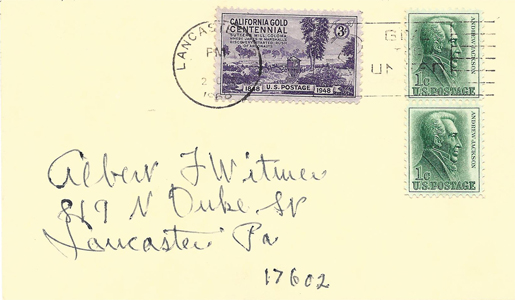 LANCASTER
PM
CALIFORNIA GOLD
CENTENNIAL
3¢
1848 U.S. POSTAGE 1948
ANDREW JACKSON
1c
U.S. POSTAGE
ANDREW JACKSON
1c
U.S. POSTAGE
Albert F Witmer
819 N Duke St
Lancaster Pa
17602